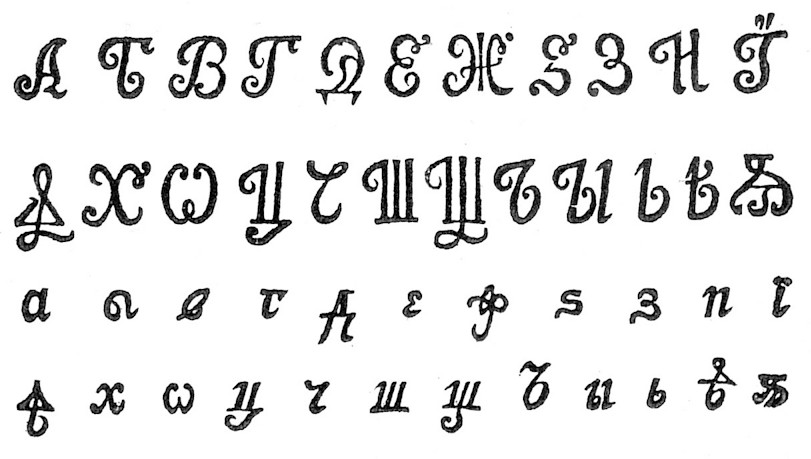 А Б В Г Д Є Ж Ѕ З И Ї
Ф Х Ѡ Ц Ч Ш Щ Ъ Ы Ь Ѣ Ѫ
а б в г д є ж ѕ з и ї
ф х ѡ ц ч ш щ ъ ы ь ѣ ѫ